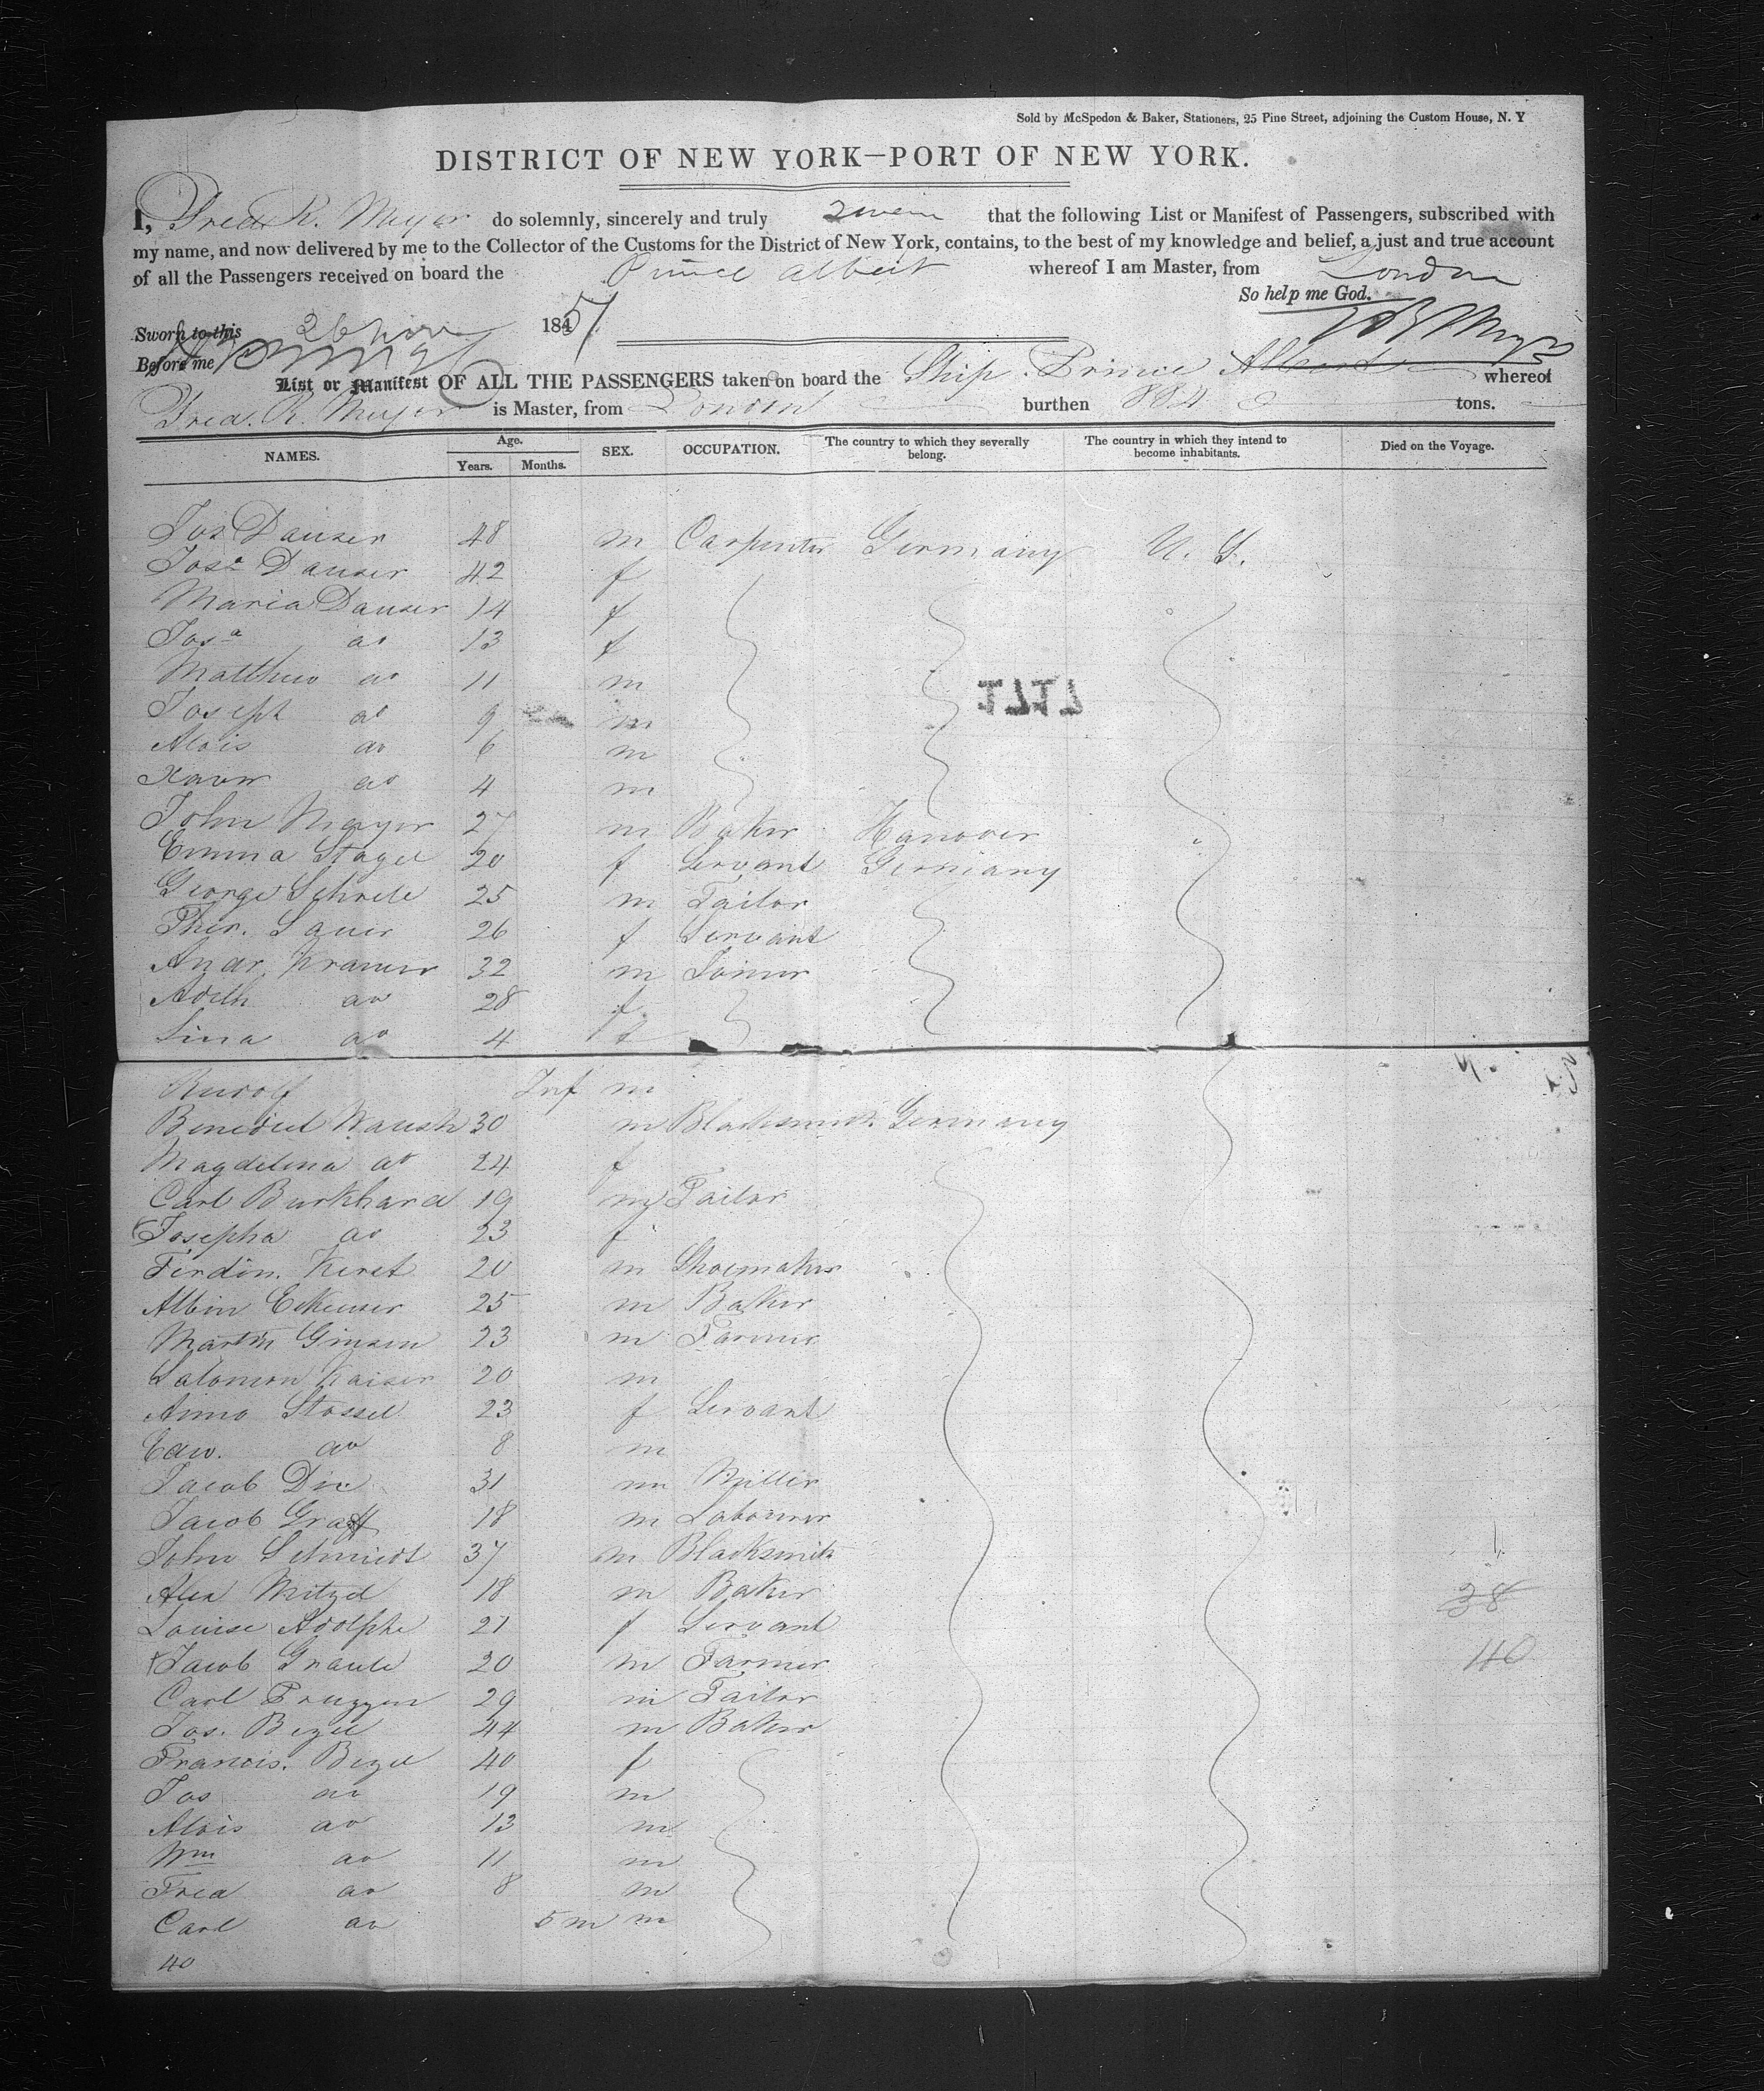 Sold by McSpedon & Baker, Stationers, 25 Pine Street, adjoining the Custom House, N. Y
DISTRICT OF NEW YORK—PORT OF NEW YORK.
I, Fred. R. Meyer do solemnly, sincerely and truly swear that the following List or Manifest of Passengers, subscribed with
my name, and now delivered by me to the Collector of the Customs for the District of New York, contains, to the best of my knowledge and belief, a just and true account
of all the Passengers received on board the Prince Albert whereof I am Master, from London
So help me God.
Sworn to this 26 Nov 1851
Before me
List or Manifest OF ALL THE PASSENGERS taken on board the Ship Prince Albert whereof
Fred. R. Meyer is Master, from London burthen 884 tons.
NAMES. Age. Years. Months. SEX. OCCUPATION. The country to which they severally belong. The country in which they intend to become inhabitants. Died on the Voyage.
Jos Dauser 48 m Carpenter Germany U. S.
Josa Dauser 42 f
Maria Dauser 14 f
Josa do 13 f
Matthew do 11 m
Joseph do 9 m
Alois do 6 m
Xaver do 4 m
John Mayer 27 m Baker Hanover
Emma Stagel 20 f Servant Germany
George Schrele 25 m Tailor
Ther. Sauer 26 f Servant
Andr. Kramer 32 m Joiner
Adelh do 28 f
Lina do 4 f
Rudolf Inf m
Benedict 30 m Blacksmith Germany
Magdelina do 24 f
Carl Burkhard 19 m Tailor
Josepha do 23 f
Ferdin. Keret 20 m Shoemaker
Albin 25 m Baker
Martin 23 m Farmer
Salomon Kaiser 20 m
Stossel 23 f Servant
Edw. do 8 m
Jacob 31 m Miller
Jacob Graff 18 m Labourer
John Schmidt 37 m Blacksmith
Alex Mitzel 18 m Baker
Louise Adolphe 21 f Servant
Jacob 20 m Farmer
Carl 29 m Tailor
Jos. Bezel 44 m Baker
Francis. Bezel 40 f
Jos do 19 m
Alois do 13 m
Wm do 11 m
Fred do 8 m
Carl do 5 m m
40
38
40